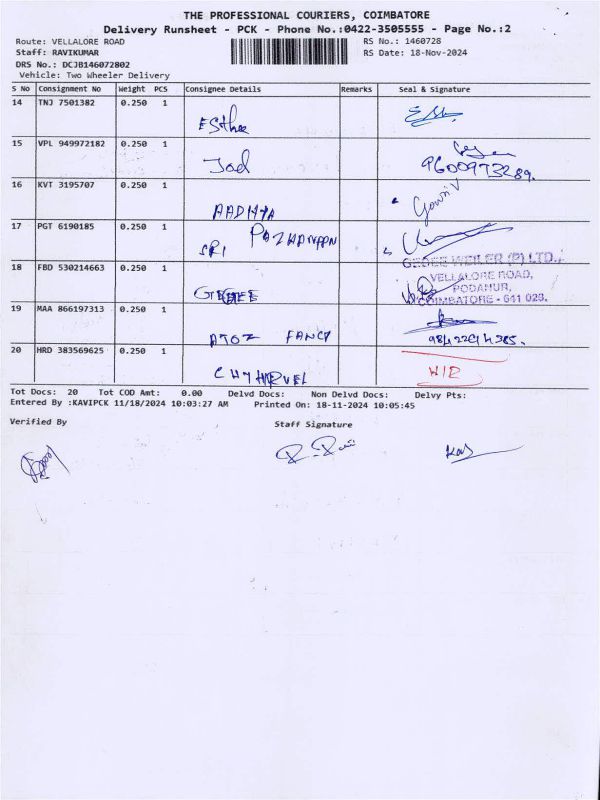 THE PROFESSIONAL COURIERS, COIMBATORE
Delivery Runsheet - PCK - Phone No.:0422-3505555 - Page No.:2
Route: VELLALORE ROAD RS No.: 1460728
Staff: RAVIKUMAR RS Date: 18-Nov-2024
DRS No.: DCJB146072802
Vehicle: Two Wheeler Delivery
S No Consignment No Weight PCS Consignee Details Remarks Seal & Signature
14 TNJ 7501382 0.250 1
Esther
15 VPL 949972182 0.250 1
9600973289.
16 KVT 3195707 0.250 1
AADHYA Gowri V
17 PGT 6190185 0.250 1
SRI PAZHANAPPN
GEDEE WEILER (P) LTD.,
18 FBD 530214663 0.250 1
VELLALORE ROAD,
PODANUR,
COIMBATORE - 641 023.
19 MAA 866197313 0.250 1
ATOZ FANCY
20 HRD 383569625 0.250 1
Tot Docs: 20 Tot COD Amt: 0.00 Delvd Docs: Non Delvd Docs: Delvy Pts:
Entered By :KAVIPCK 11/18/2024 10:03:27 AM Printed On: 18-11-2024 10:05:45
Verified By Staff Signature